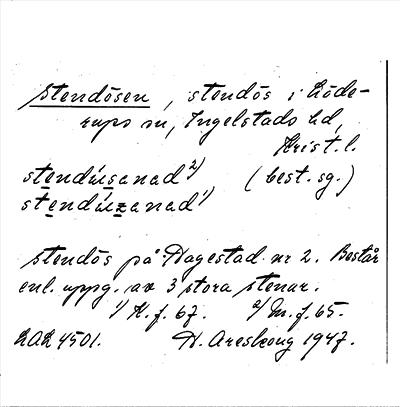 Stendösen, stendös i Löde-
rups sn, Ingelstads hd,
Krist. l.
stendúsanad 2) (best. sg.)
stendúzanad 1)
Stendös på Hagestad nr 2. Består
enl. uppg. av 3 stora stenar.
1) K. f. 67. 2) M. f. 65.
LAL 4501. H. Areskoug 1947.